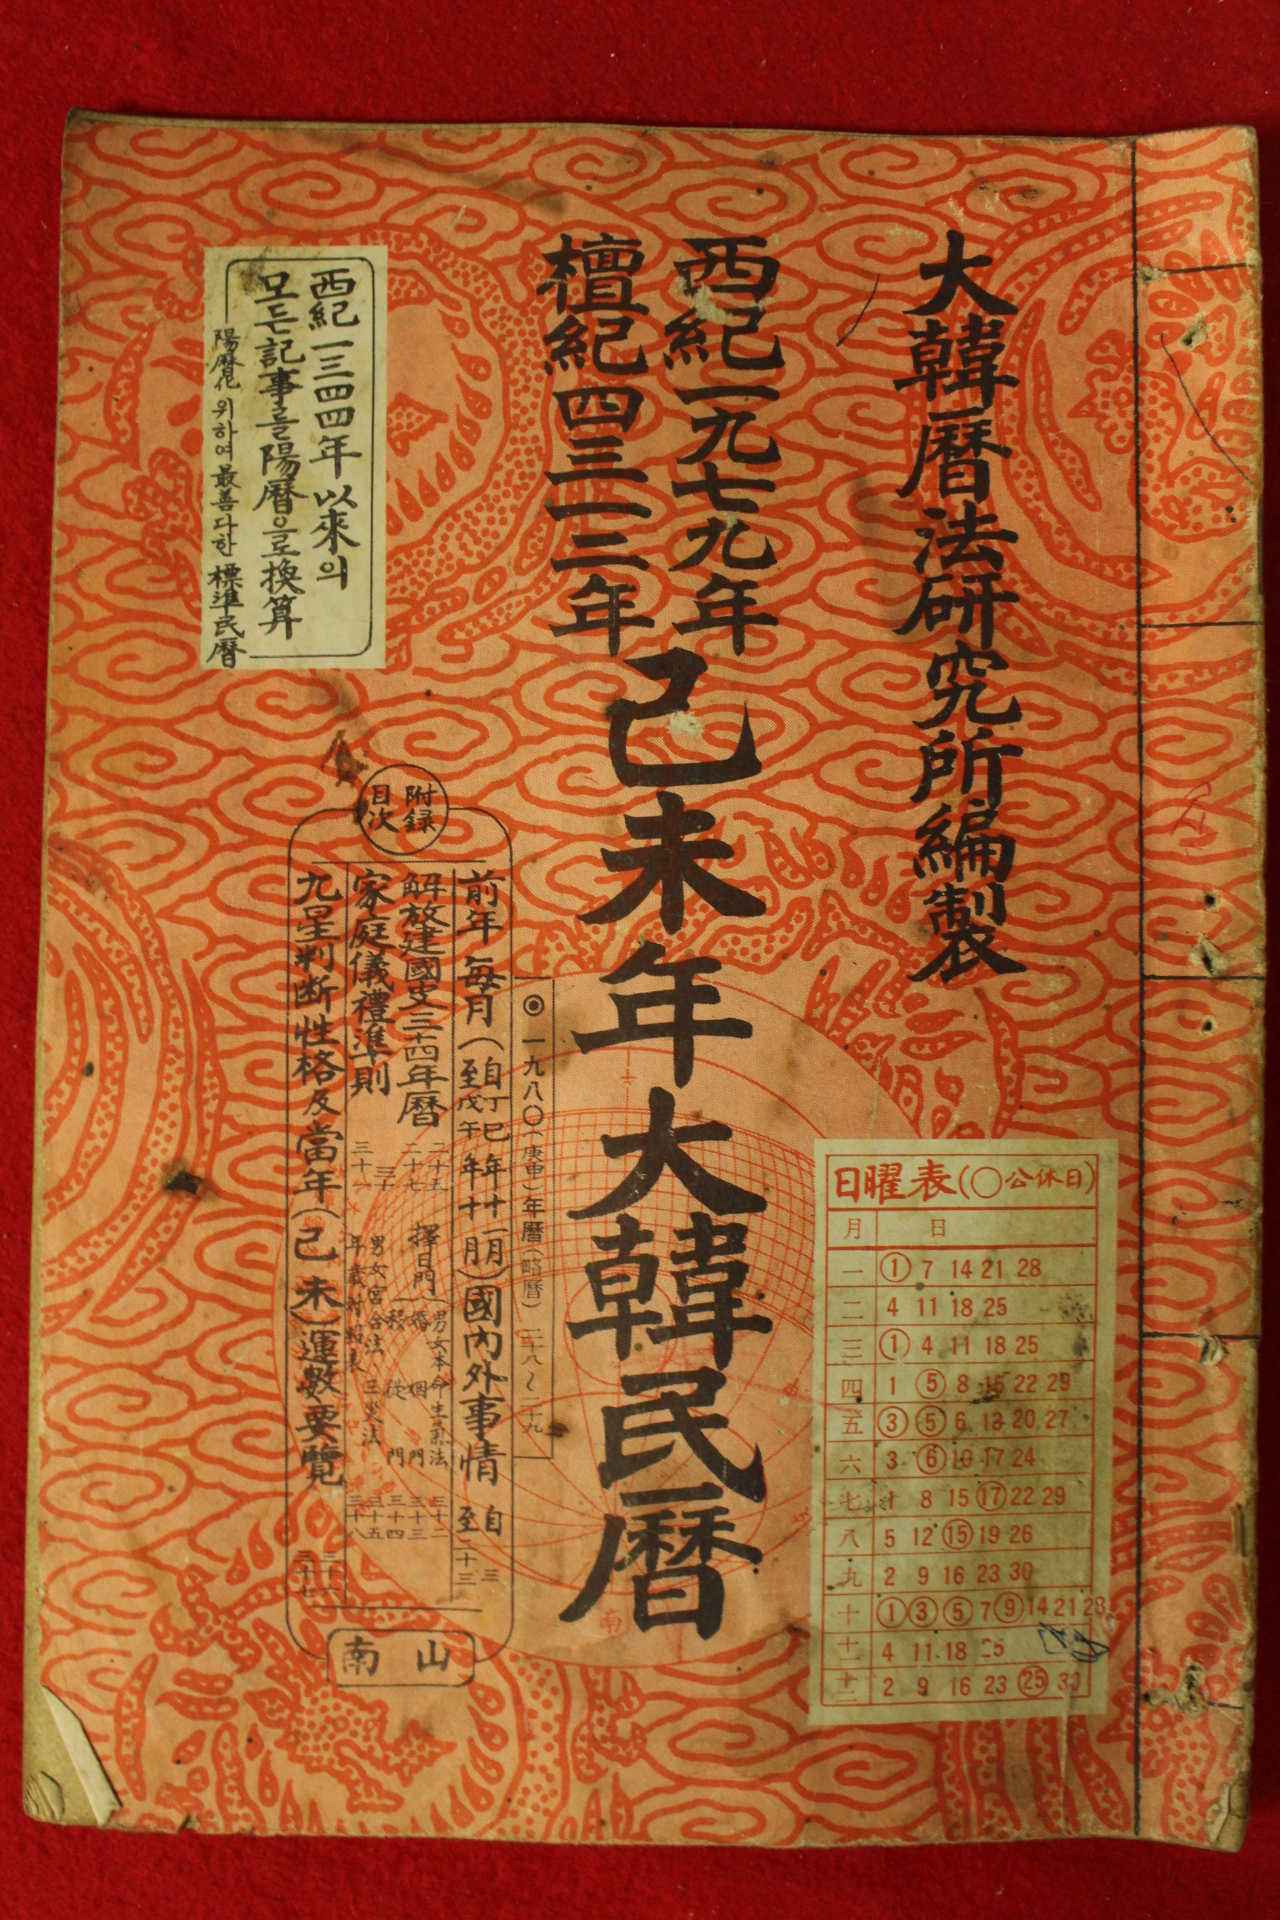 大韓曆法研究所編製
西紀一九七九年
檀紀四三一二年
己未年大韓民曆
西紀一三四四年以來의
모든記事를陽曆으로換算
陽曆化 위하여 最善다한 標準民曆
附録
目次
◉一九八〇(庚申)年曆(略曆) 二十八~二十九
前年 每月(自丁巳年十一月 至戊午年十月)國內外事情 自三 至二十三
解放建國史三十四年曆 二十五 二十七
擇日門
男女本命生氣法 三十二
婚姻門 三十三
移徙門 三十四
家庭儀禮準則 三十 三十一
男女宮合法 三災法 三十五
年歲對照表 三十八
九星判断性格及當年(己未)運數要覽 三十六 三十七
南山
日曜表(○公休日)
月 日
一 ① 7 14 21 28
二 4 11 18 25
三 ① 4 11 18 25
四 1 ⑤ 8 15 22 29
五 ③ ⑤ 6 13 20 27
六 3 ⑥ 10 17 24
七 8 15 ⑰ 22 29
八 5 12 ⑮ 19 26
九 2 9 16 23 30
十 ① ③ ⑤ 7 ⑨ 14 21 28
十一 4 11 18 25
十二 2 9 16 23 ㉕ 30
南